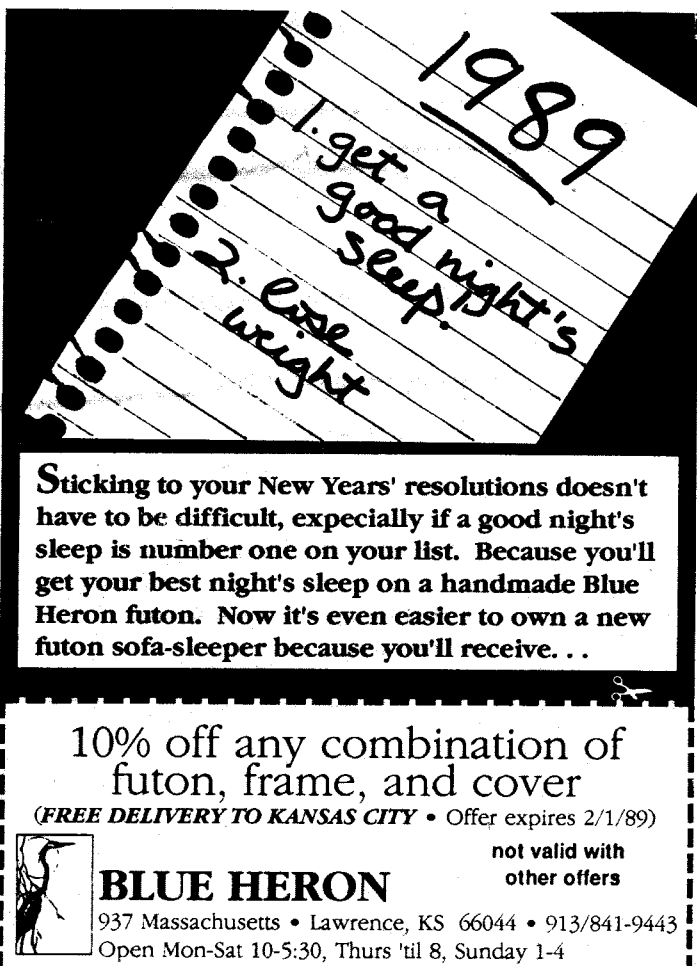 1989
1. get a
good night's
sleep.
2. lose
weight
Sticking to your New Years' resolutions doesn't
have to be difficult, expecially if a good night's
sleep is number one on your list. Because you'll
get your best night's sleep on a handmade Blue
Heron futon. Now it's even easier to own a new
futon sofa-sleeper because you'll receive. . .
10% off any combination of
futon, frame, and cover
(FREE DELIVERY TO KANSAS CITY • Offer expires 2/1/89)
not valid with
other offers
BLUE HERON
937 Massachusetts • Lawrence, KS 66044 • 913/841-9443
Open Mon-Sat 10-5:30, Thurs 'til 8, Sunday 1-4